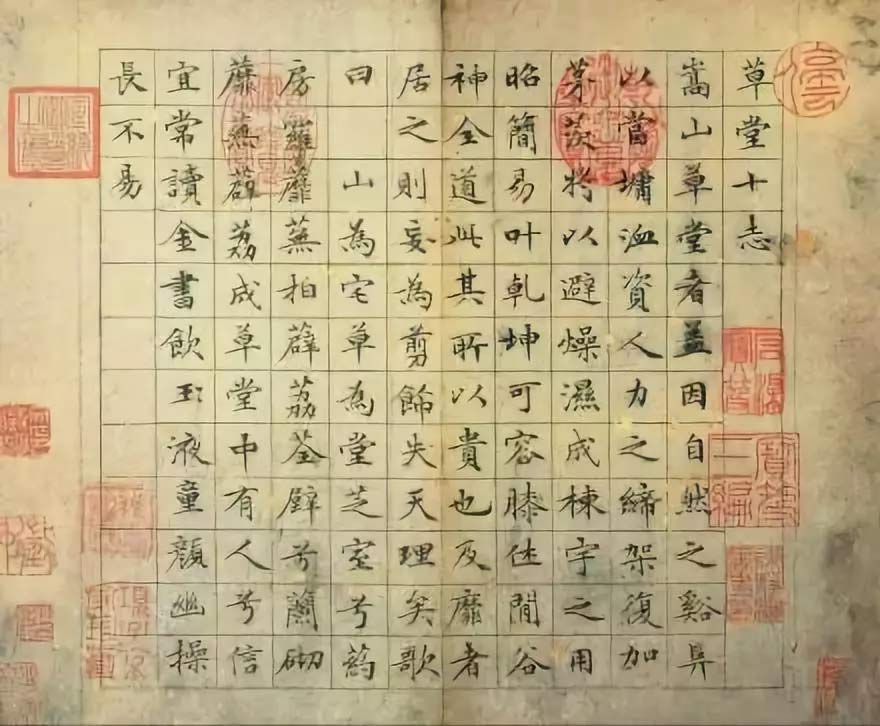 草堂十志
嵩山草堂者盖因自然之谿阜
以當墉洫資人力之締架復加
茅茨將以避燥濕成棟宇之用
昭簡易叶乹坤可容膝休閒谷
神全道此其所以貴也及靡者
居之則妄為剪飾失天理矣歌
曰 山為宅草為堂芝室兮葯
房羅蘼蕪拍薜荔荃壁兮蘭砌
蘼蕪薜荔成草堂中有人兮信
宜常讀金書飲玉液童顏幽操
長不易